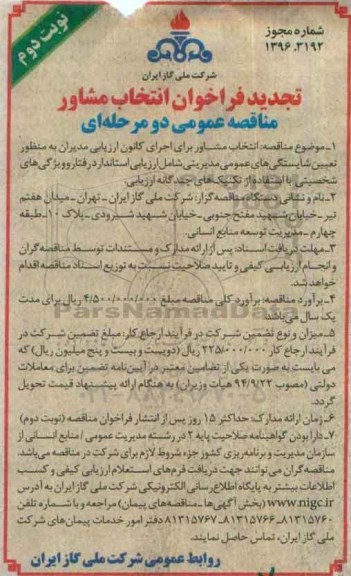 نوبت دوم
شماره مجوز
۱۳۹۶.۳۱۹۲
شرکت ملی گاز ایران
تجدید فراخوان انتخاب مشاور
مناقصه عمومی دو مرحله‌ای
۱-موضوع مناقصه: انتخاب مشاور برای اجرای کانون ارزیابی مدیران به منظور
تعیین شایستگی های عمومی مدیریتی شامل ارزیابی استاندارد رفتار و ویژگی های
شخصیتی با استفاده از تکنیک های چندگانه ارزیابی.
۲-نام و نشانی دستگاه مناقصه گزار: شرکت ملی گاز ایران - تهران - میدان هفتم
تیر-خیابان شهید مفتح جنوبی-خیابان شهید شیرودی-پلاک ۱۰-طبقه
چهارم-مدیریت توسعه منابع انسانی.
۳-مهلت دریافت اسناد: پس از ارائه مدارک و مستندات توسط مناقصه گران
و انجام ارزیابی کیفی و تایید صلاحیت نسبت به توزیع اسناد مناقصه اقدام
خواهد شد.
۴-برآورد مناقصه: برآورد کلی مناقصه مبلغ ۴/۵۰۰/۰۰۰/۰۰۰ ریال برای مدت
یک سال می باشد.
۵-میزان و نوع تضمین شرکت در فرآیند ارجاع کار: مبلغ تضمین شرکت در
فرآیند ارجاع کار ۲۲۵/۰۰۰/۰۰۰ ریال (دویست و بیست و پنج میلیون ریال) که
می بایست به صورت یکی از تضامین معتبر در آیین نامه تضمین برای معاملات
دولتی (مصوب ۹۴/۹/۲۲ هیات وزیران) به هنگام ارائه پیشنهاد قیمت تحویل
گردد.
۶-زمان ارائه مدارک: حداکثر ۱۵ روز پس از انتشار فراخوان مناقصه (نوبت دوم)
۷-دارا بودن گواهینامه صلاحیت پایه ۲ در رشته مدیریت عمومی / منابع انسانی از
سازمان مدیریت و برنامه ریزی کشور جزء شروط لازم برای شرکت در مناقصه می باشد.
مناقصه گران می توانند جهت دریافت فرم های استعلام ارزیابی کیفی و کسب
اطلاعات بیشتر به پایگاه اطلاع رسانی الکترونیکی شرکت ملی گاز ایران به آدرس
www.nigc.ir (بخش آگهی ها - مناقصه های پیمان) مراجعه و با شماره تلفن
۸۱۳۱۵۷۶۰-۸۱۳۱۵۷۶۶-۸۱۳۱۵۷۶۷ دفتر امور خدمات پیمان های شرکت
ملی گاز ایران، تماس حاصل نمایند.
روابط عمومی شرکت ملی گاز ایران
ParsNamadData